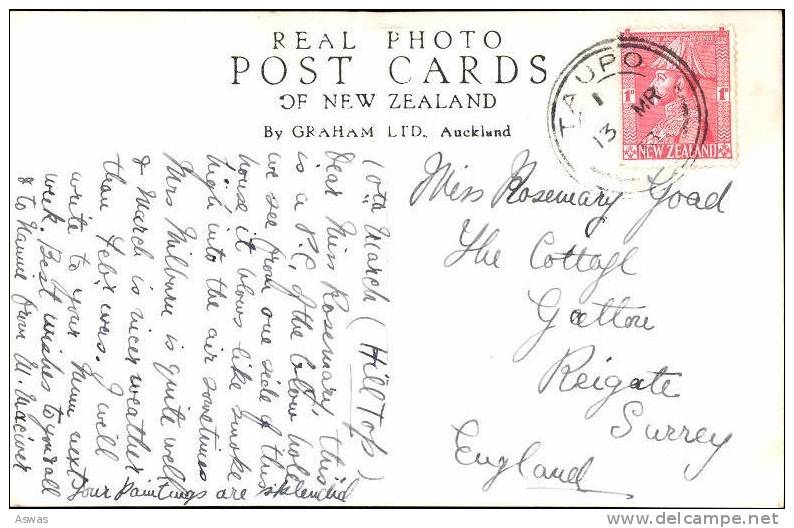 REAL PHOTO
POST CARDS
OF NEW ZEALAND
By GRAHAM LTD., Auckland
TAUPO
1
13 MR
POSTAGE AND REVENUE
1D 1D
NEW ZEALAND
10th March (Hill Top)
Dear Miss Rosemary, this
is a P.C. of the blow hole
we see from one side of this
house it blows like smoke
high into the air sometimes
Mrs Milburn is quite well
& March is nicer weather
than Feb: was. I will
write to your Mum next
week. Best wishes to you all
& to Nannie from M. Maciver
Your paintings are splendid
Miss Rosemary Goad
The Cottage
Gatton
Reigate
Surrey
England
Aswas
delcampe.net